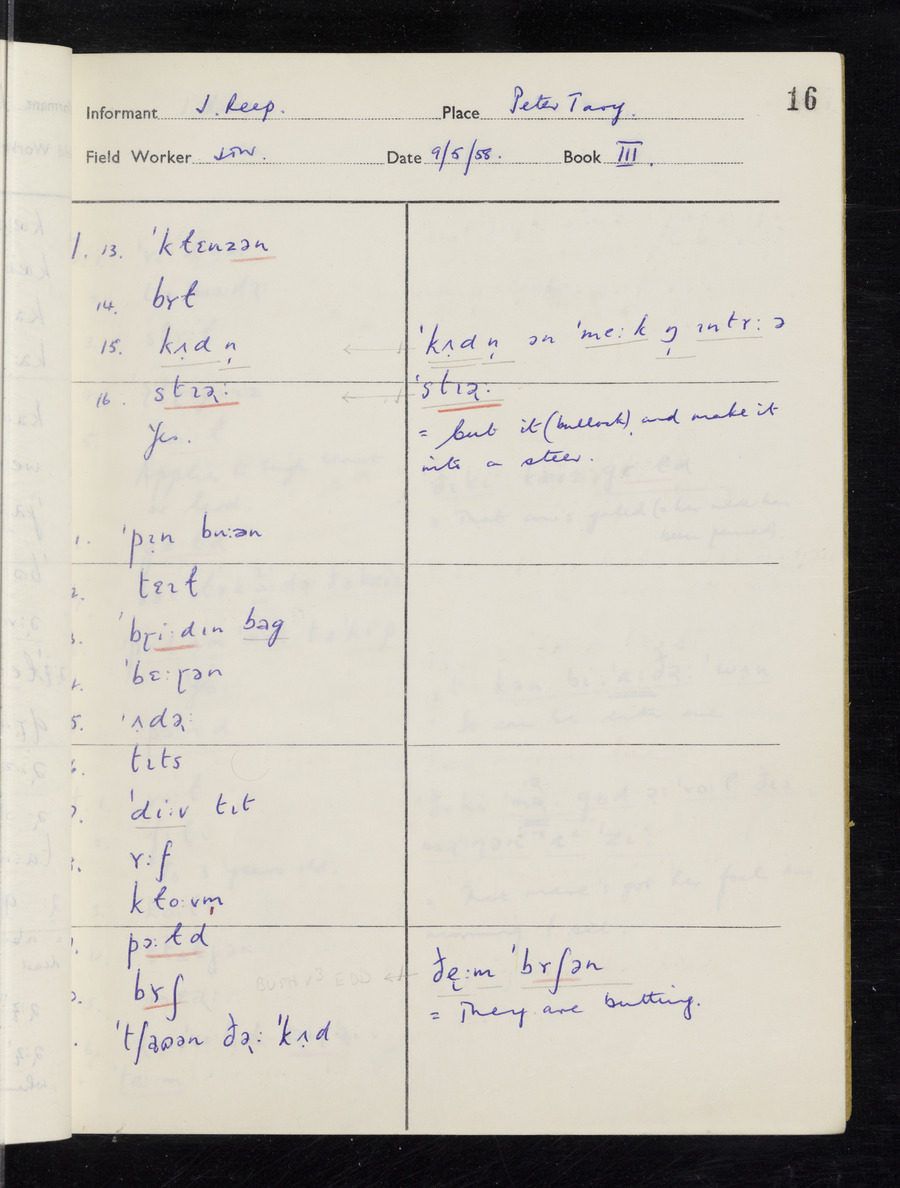 16
Informant J. Reep. Place Peter Tavy.
Field Worker Date 9/5/58. Book III.
1. 13. ˈkɫɛnzən
14. bʏɫ
15. kʌ̣dn̩ ˈkʌ̣dn̩ ən ˈme:k ŋ̩ ɪntʏ: ə
16. stɪə̢: ˈstɪə̢:
Yes. = cut it (bullock), and make it
into a steer.
1. ˈpɪ̣n
2. tɛɪɫ
3. ˈbɽi:dɪn bag
4. ˈbɛ:ɽən
5. ˈʌdə̢:
6. tɪts
7. ˈdi:v tɪt
8. ʏ:f
kɫo:vm̩
9. pɔ:ɫd
bʏʃ ðe̞:m ˈbʏʃən
= They are butting.
ðə̢: ˈkʌ̣d